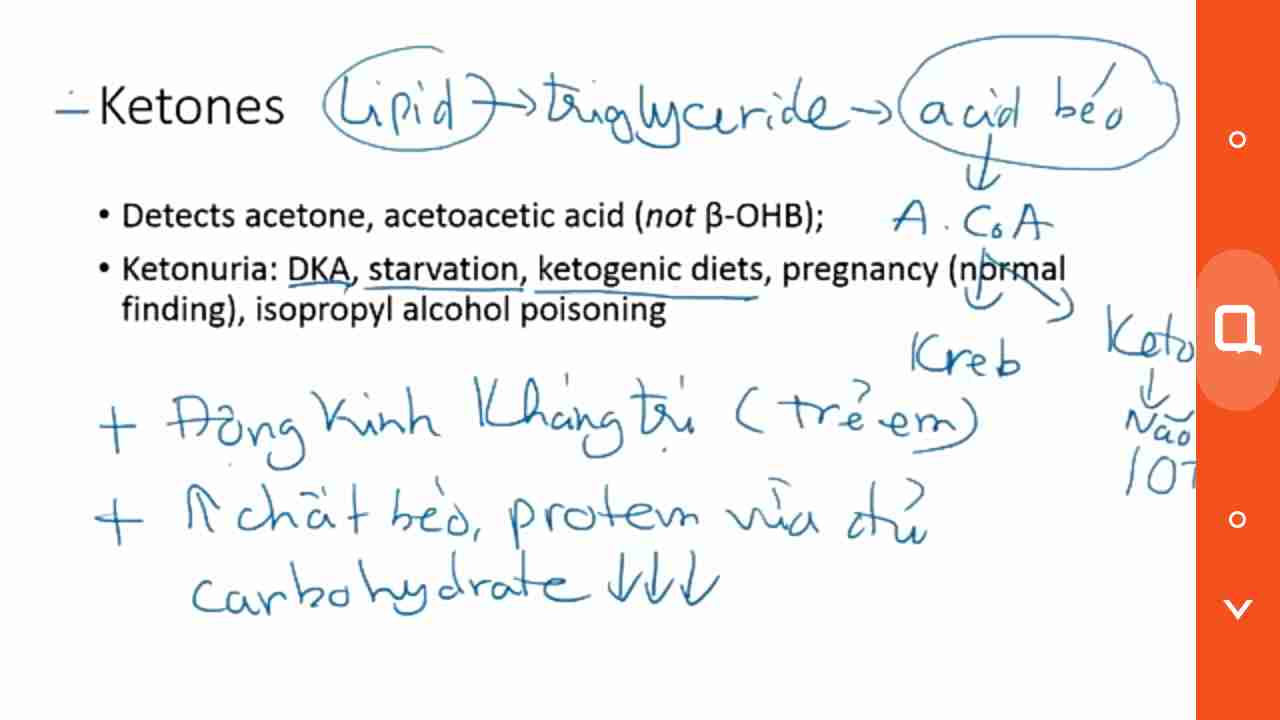 Ketones Lipid → triglyceride → acid béo
• Detects acetone, acetoacetic acid (not β-OHB);
A. CoA
• Ketonuria: DKA, starvation, ketogenic diets, pregnancy (normal
finding), isopropyl alcohol poisoning
Kreb
Keto
Não
+ Động kinh Kháng trị (trẻ em)
+ ↑ chất béo, protein vừa đủ
carbohydrate ↓↓↓